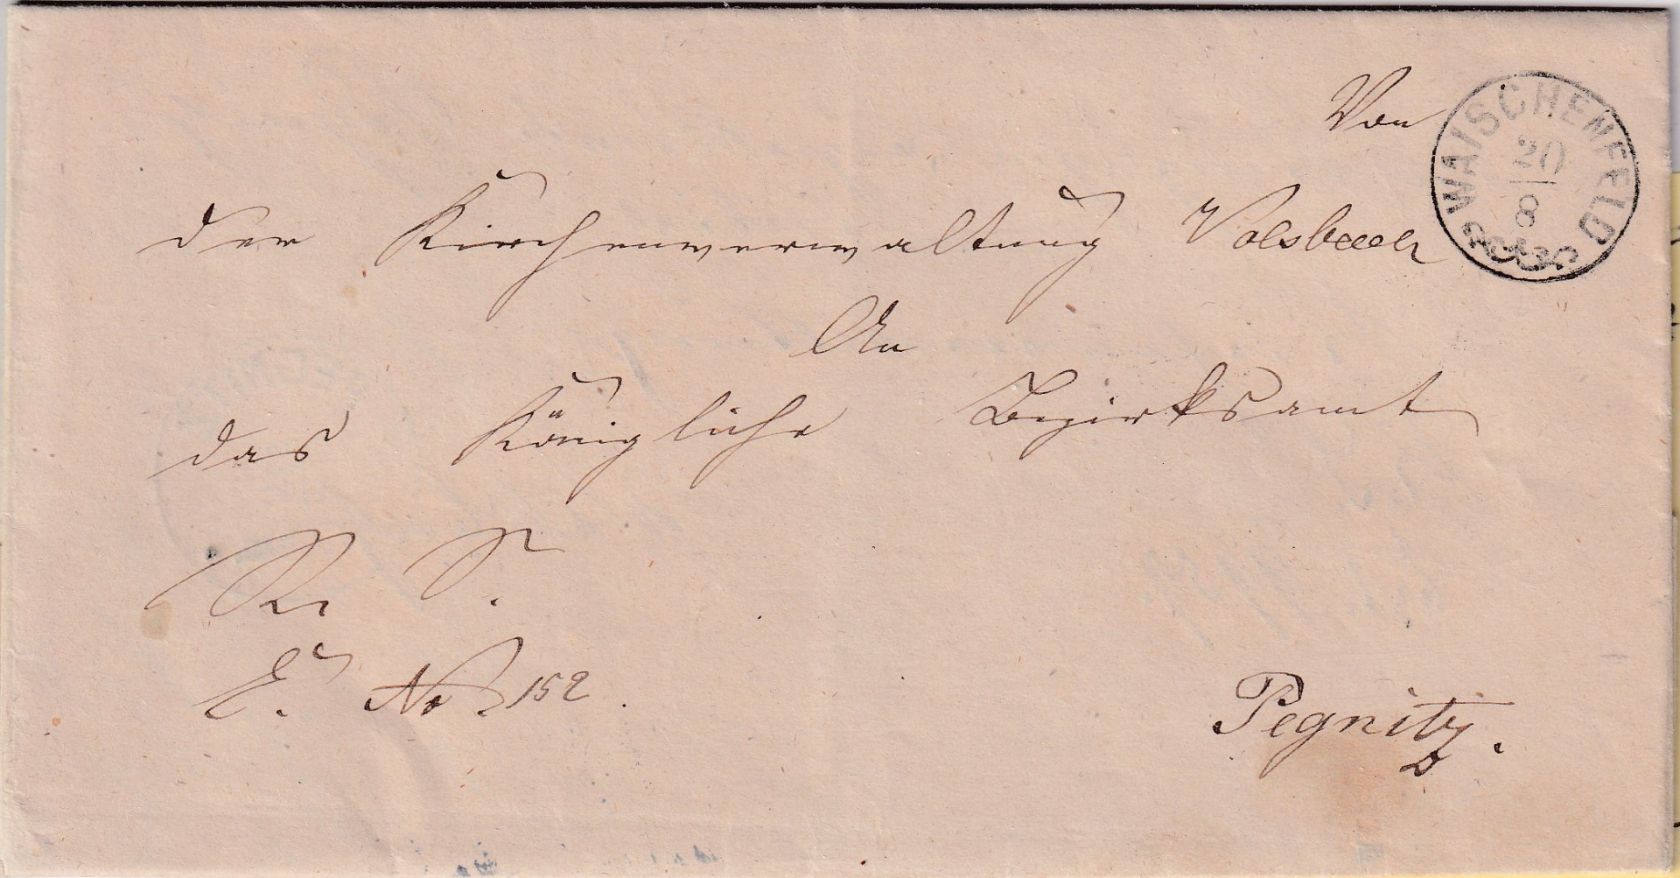 Von
WAISCHENFELD
20
8
der Kirchenverwaltung Volsbach
An
das Königliche Bezirksamt
R. S.
E. No 152.
Pegnitz.